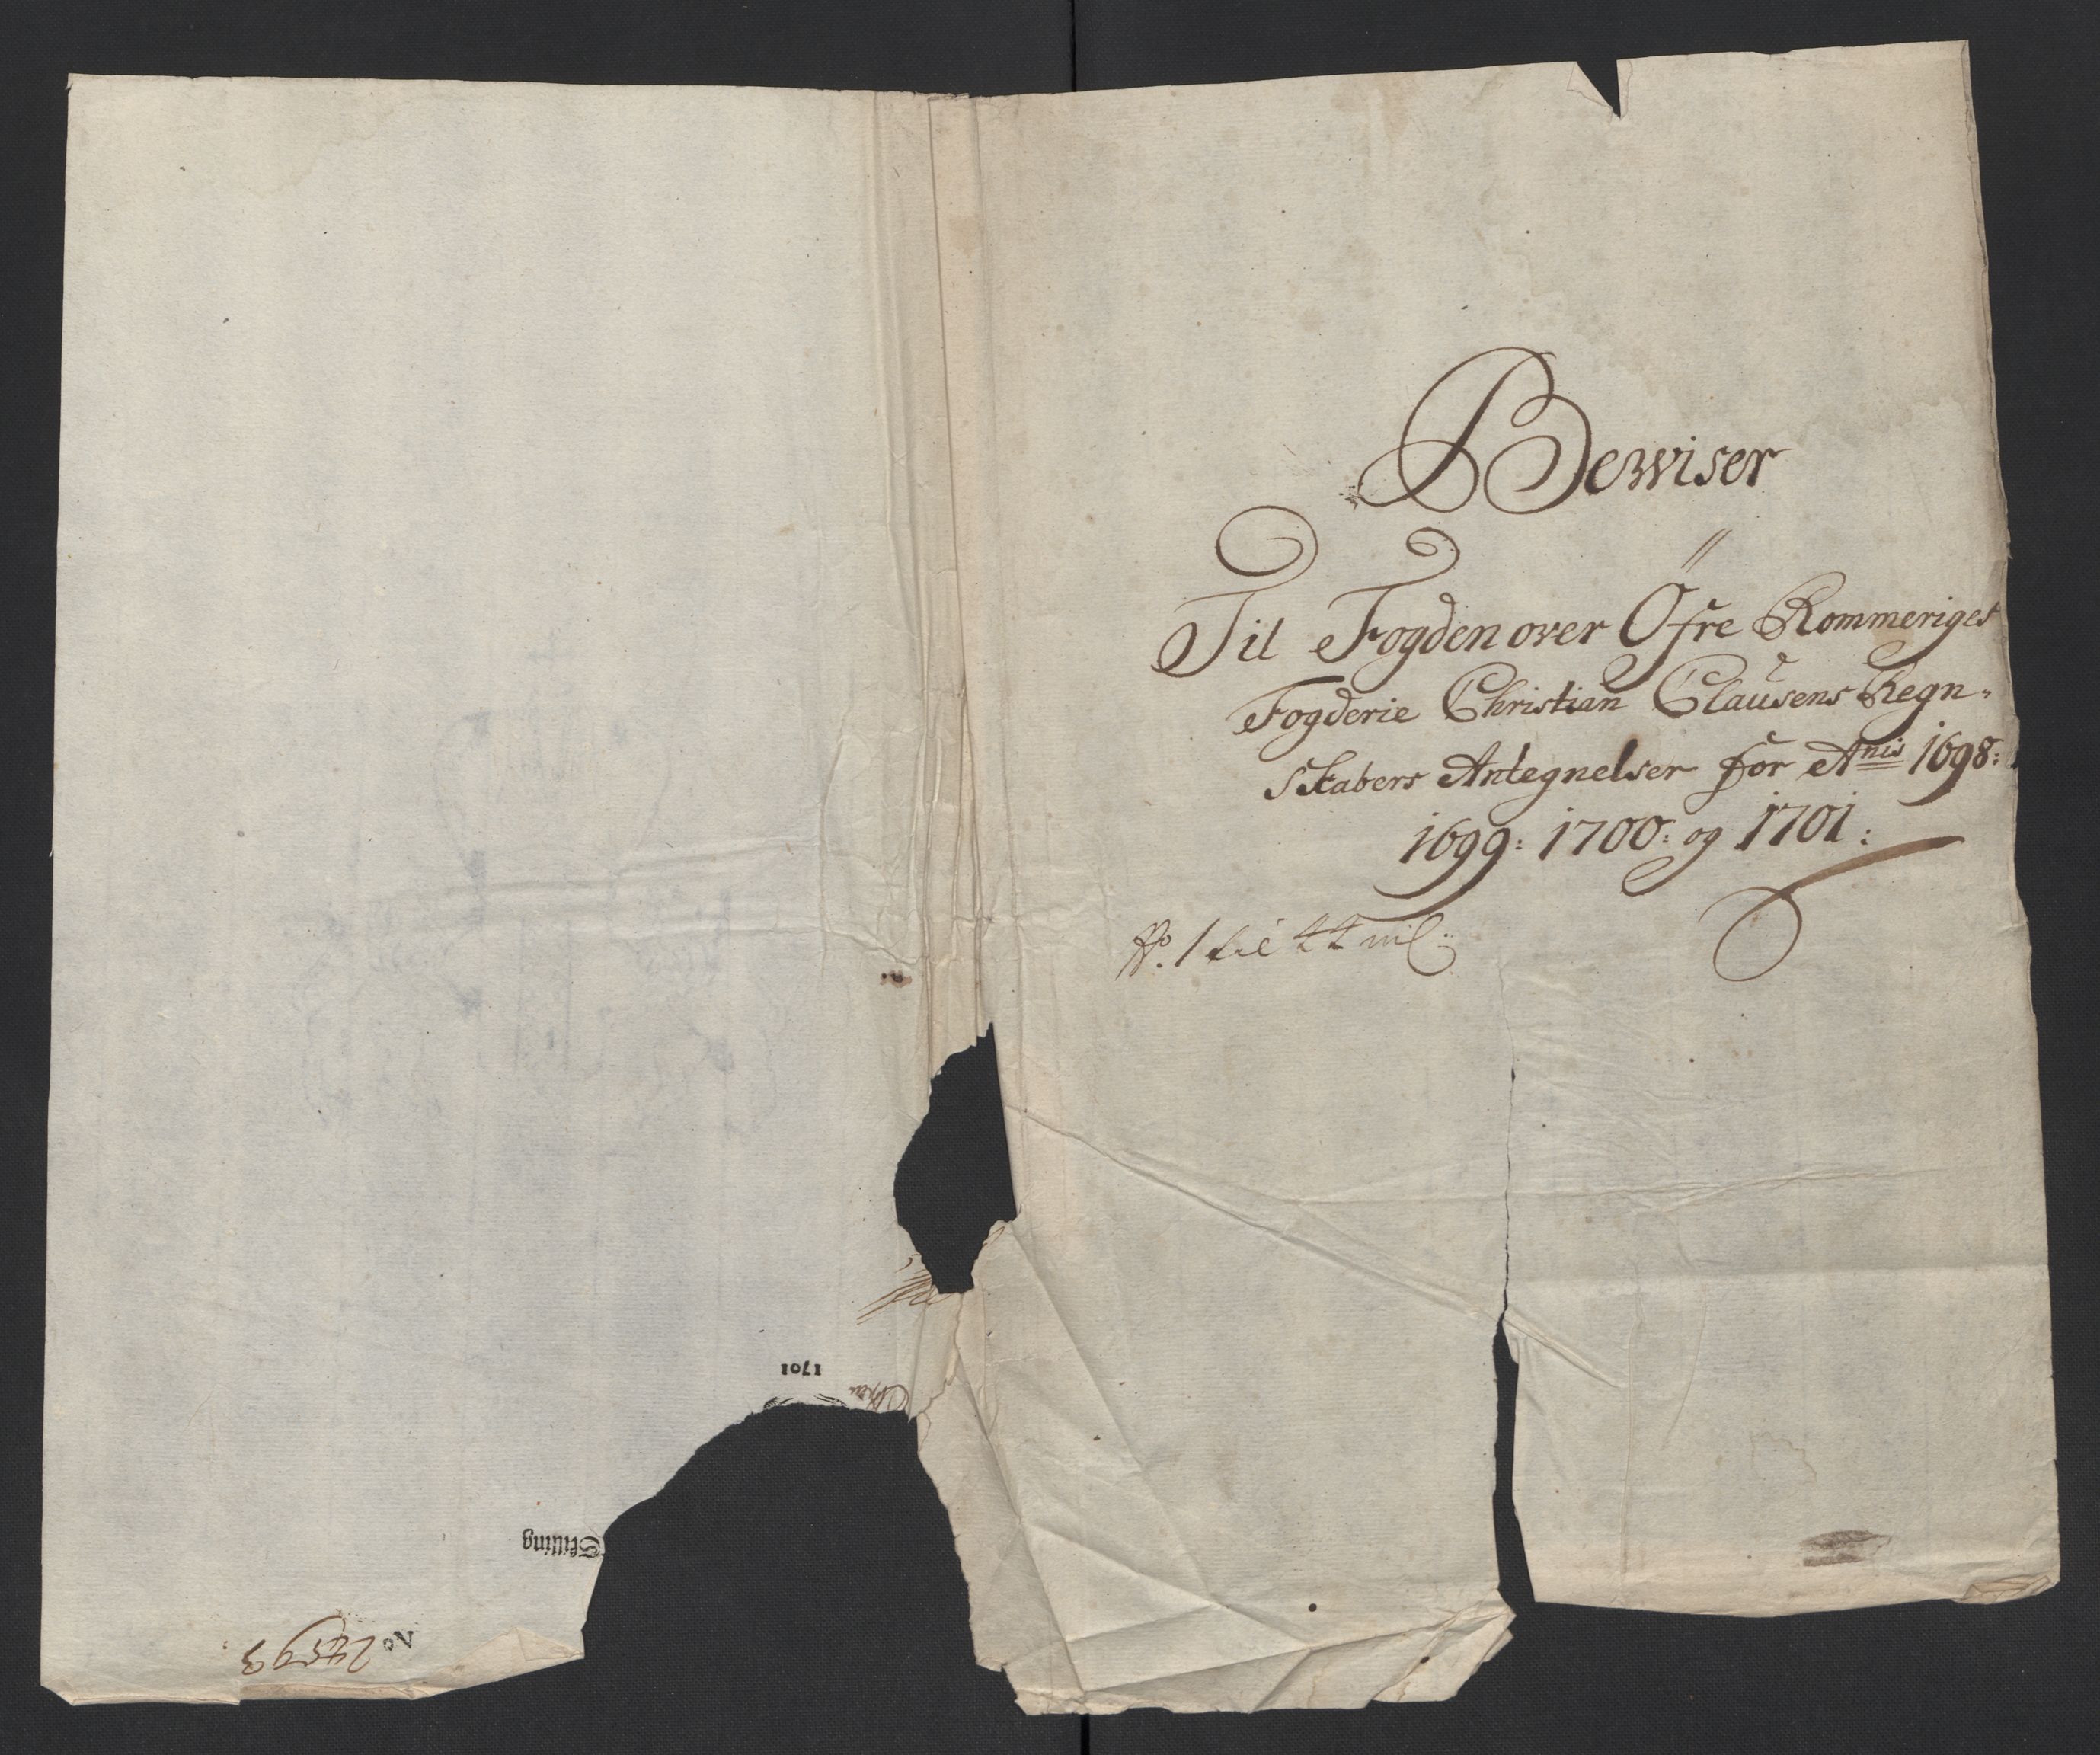 Bewiser
Til Fogden over Öfre Rommeriges
Fogderie Christian Clausens Regn-
skabers Antegnelser for Anis 1698:
1699: 1700: og 1701:
No. 1 til 44 incl:
1701
Skilling
No 24593